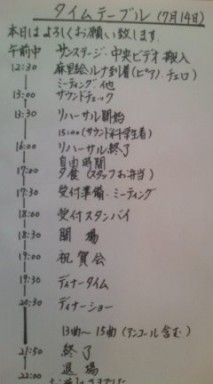 タイムテーブル (7月14日)
本日はよろしくお願い致します.
午前中 サンステージ・中央ビデオ 搬入
12:30 麻里絵・ルナ到着 (ピアノ, チェロ)
ミーティング 他
13:00 サウンドチェック
13:30 リハーサル開始
15:00 (サウンド科学生着)
16:00 リハーサル終了
自由時間
17:00 夕食 (スタッフお弁当)
17:30 受付準備・ミーティング
18:00 受付スタンバイ
18:30 開場
19:00 祝賀会
19:30 ディナータイム
20:30 ディナーショー
13曲〜15曲 (アンコール含む)
21:50 終了
22:00 退場